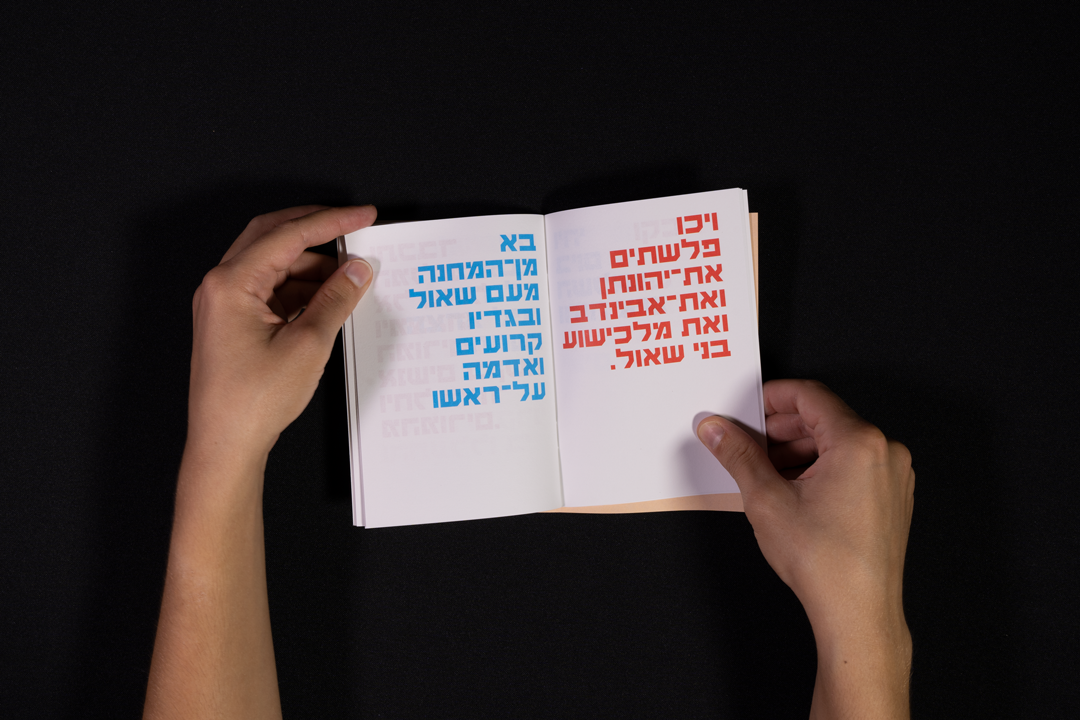 ויכו
פלשתים
את־יהונתן
ואת־אבינדב
ואת מלכישוע
בני שאול.
בא
מן־המחנה
מעם שאול
ובגדיו
קרועים
ואדמה
על־ראשו